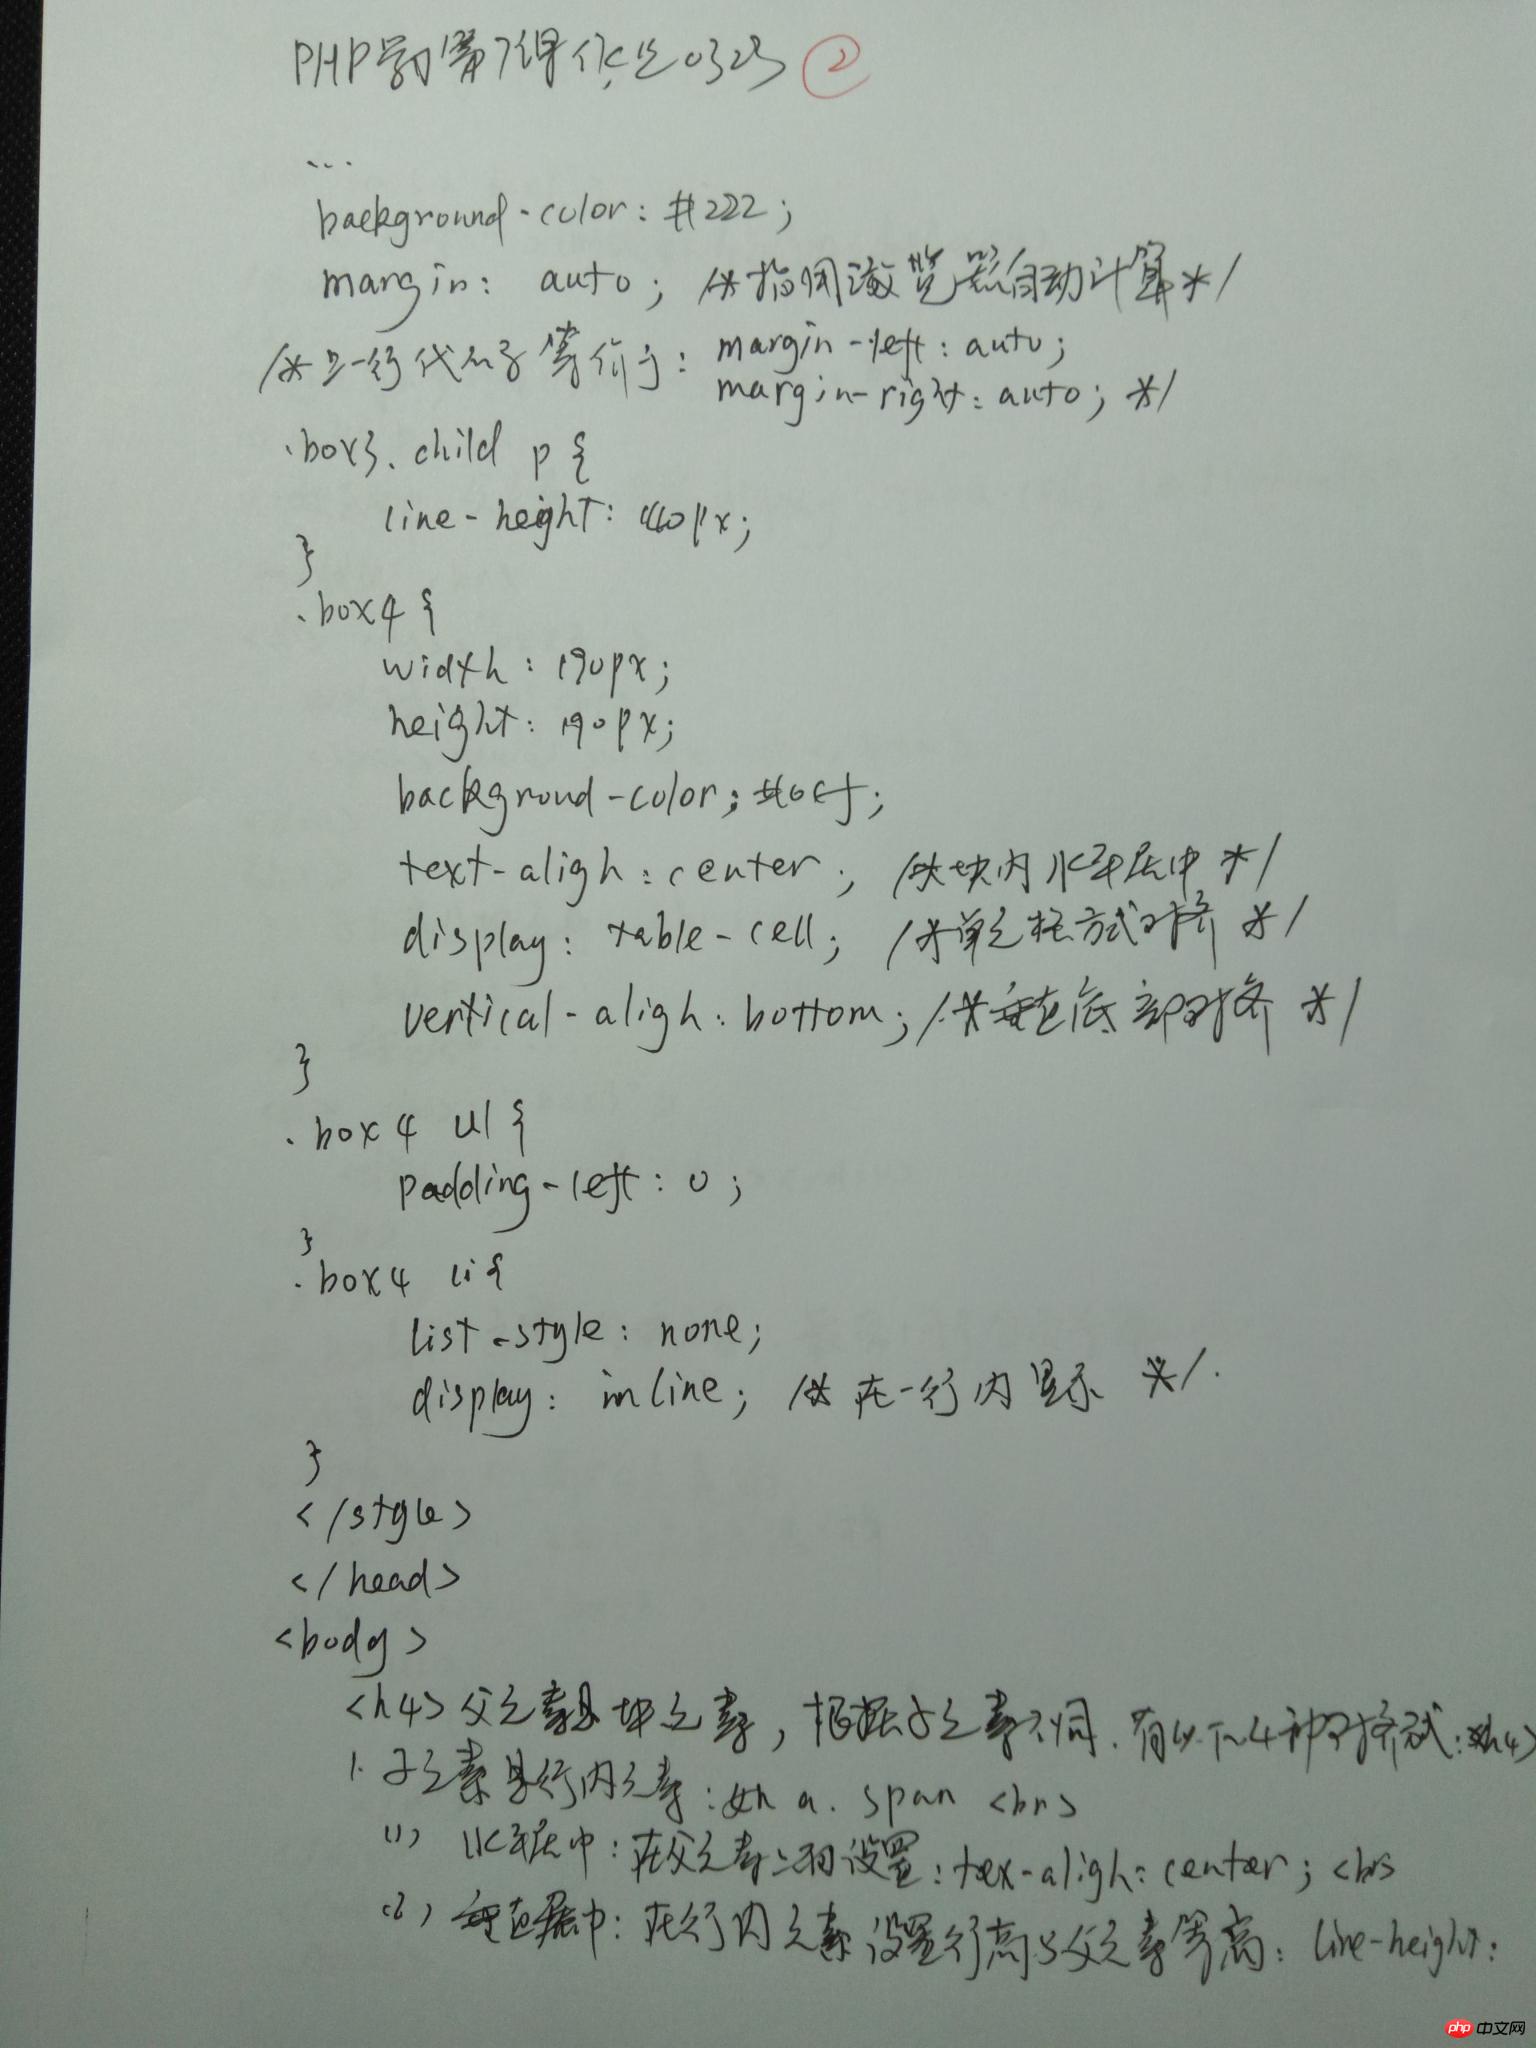 PHP学习第7课作业0323 ②
...
background-color: #222;
margin: auto; /* 指用浏览器自动计算 */
/* 上一行代码等价于: margin-left: auto;
margin-right: auto; */
.box3 .child p {
line-height: 40px;
}
.box4 {
width: 190px;
height: 190px;
background-color: #6cf;
text-aligh: center; /* 块内水平居中 */
display: table-cell; /* 单元格方式对齐 */
vertical-aligh: bottom; /* 垂直底部对齐 */
}
.box4 ul {
padding-left: 0;
}
.box4 li {
list-style: none;
display: inline; /* 在一行内显示 */
}
</style>
</head>
<body>
<h4>父元素是块元素,根据子元素不同,有以下4种对齐式:</h4>
1. 子元素是行内元素:如 a. span <br>
(1) 水平居中:在父元素上面设置:tex-aligh: center; <br>
(2) 垂直居中:在行内元素设置行高与父元素等高: line-height:
php 中文网